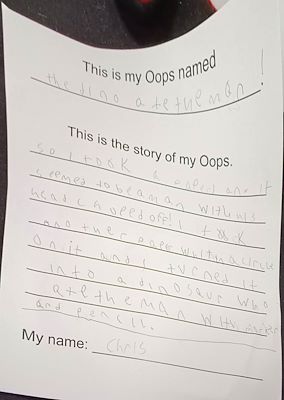 This is my Oops named
the dino ate the man!
This is the story of my Oops.
so I took a paper and it
seemed to be a man with his
head chopped off! I took
another paper with a circle
on it and I turned it
into a dinosaur who
ate the man with marker
and pencil.
My name: Chris